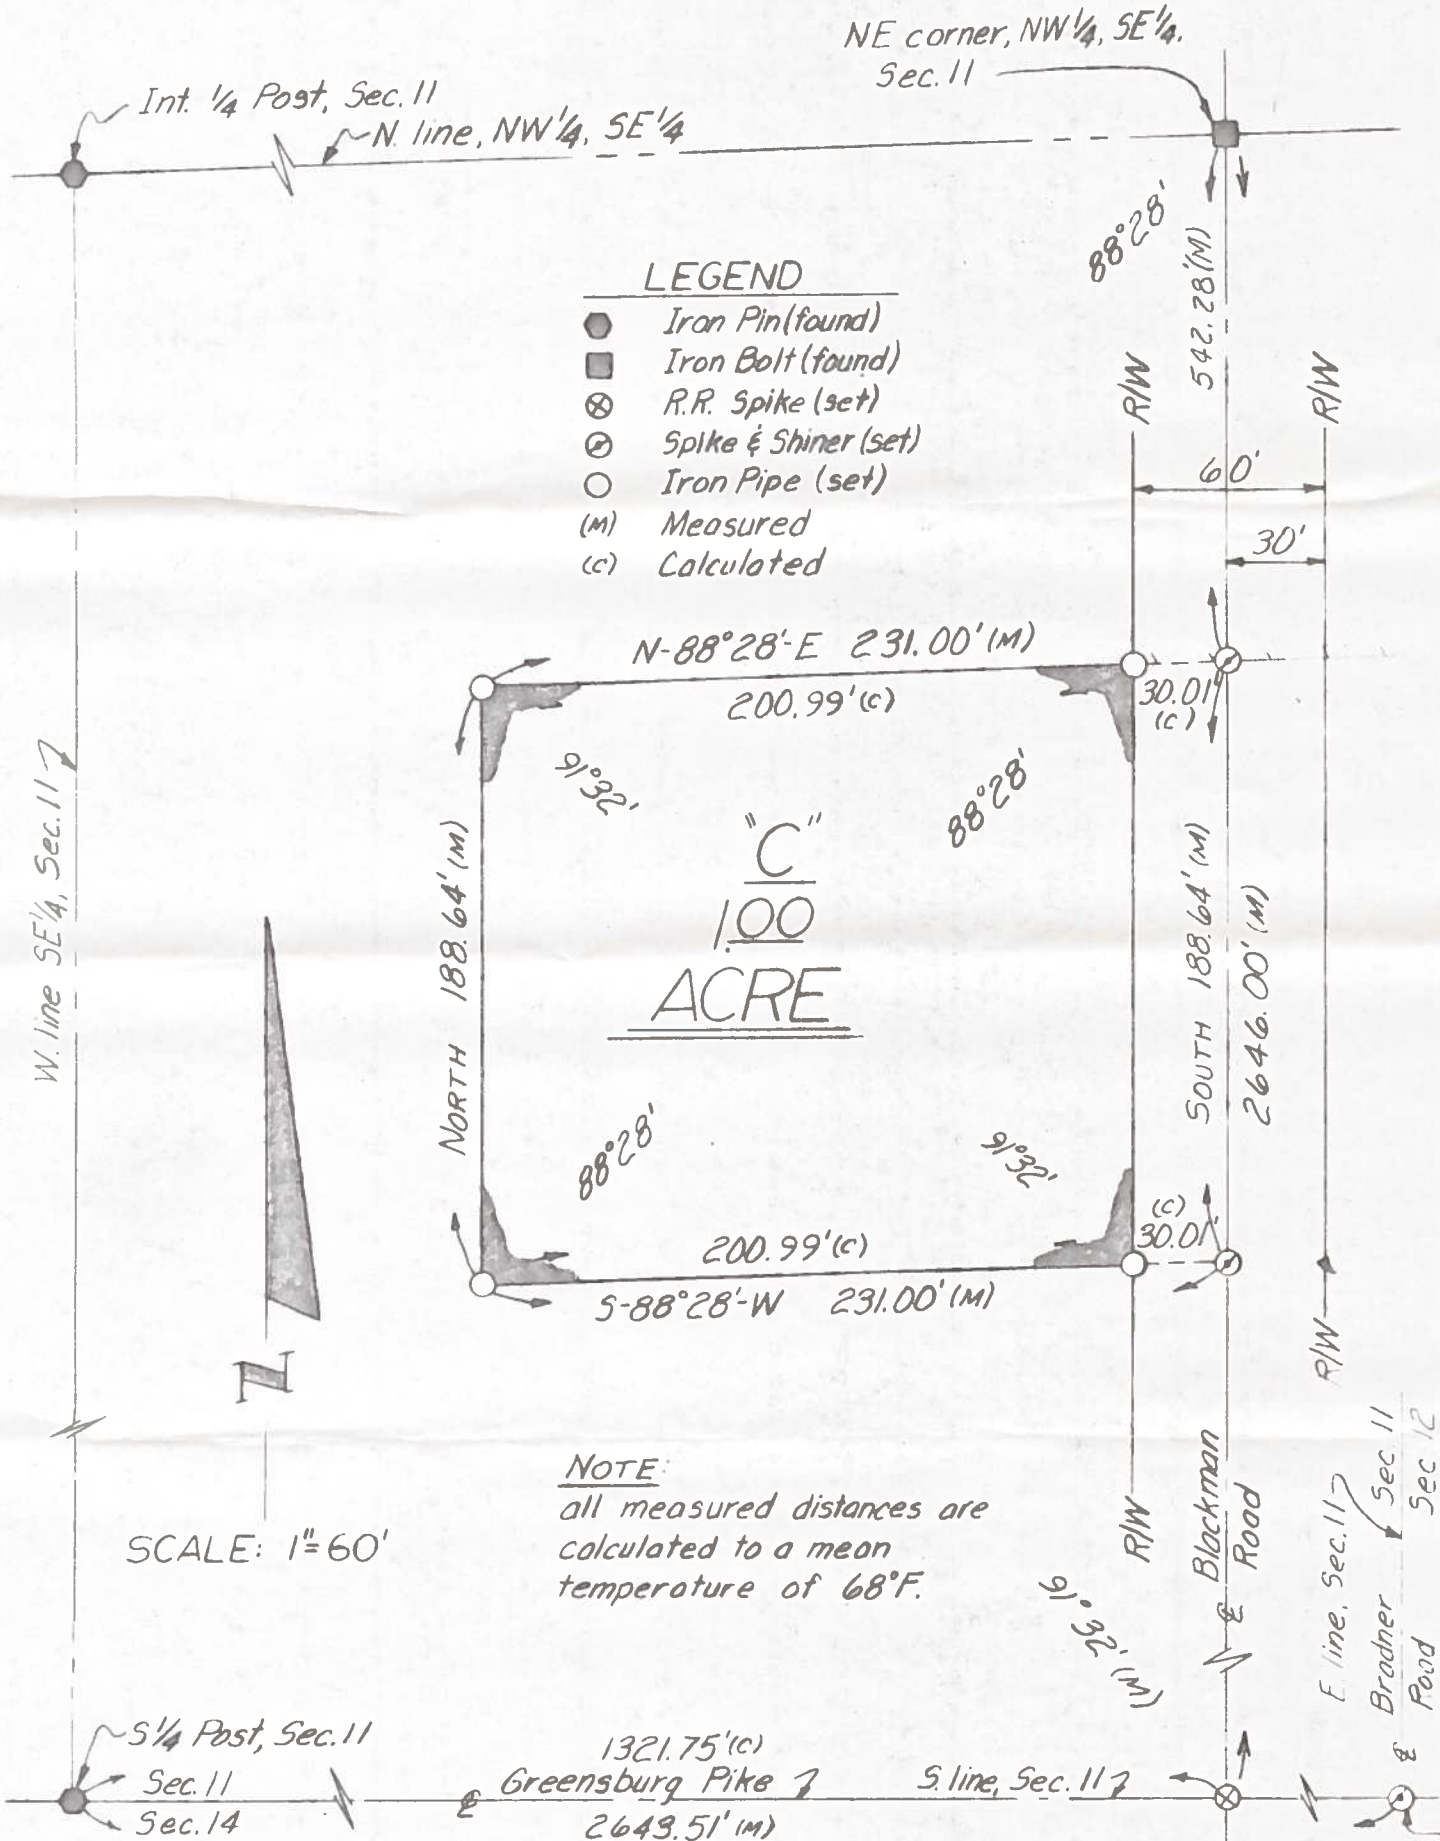 NE corner, NW ¼, SE ¼,
Sec. 11
Int. ¼ Post, Sec. 11
N. line, NW ¼, SE ¼
88°28'
542.28'(M)
LEGEND
Iron Pin (found)
Iron Bolt (found)
R.R. Spike (set)
Spike & Shiner (set)
Iron Pipe (set)
(M) Measured
(C) Calculated
R/W
R/W
60'
30'
N-88°28'-E 231.00' (M)
200.99' (C)
30.01'
(C)
91°32'
88°28'
W. line SE ¼, Sec. 11
NORTH 188.64' (M)
"C"
1.00
ACRE
SOUTH 188.64' (M)
2646.00' (M)
88°28'
91°32'
(C)
30.01'
200.99' (C)
S-88°28'-W 231.00' (M)
R/W
N
SCALE: 1"=60'
NOTE:
all measured distances are
calculated to a mean
temperature of 68°F.
R/W
Blackman
Road
℄
E. line, Sec. 11
Sec 11
Sec 12
Bradner
Road
℄
91°32' (M)
S ¼ Post, Sec. 11
Sec. 11
Sec. 14
1321.75' (C)
℄ Greensburg Pike
S. line, Sec. 11
2643.51' (M)